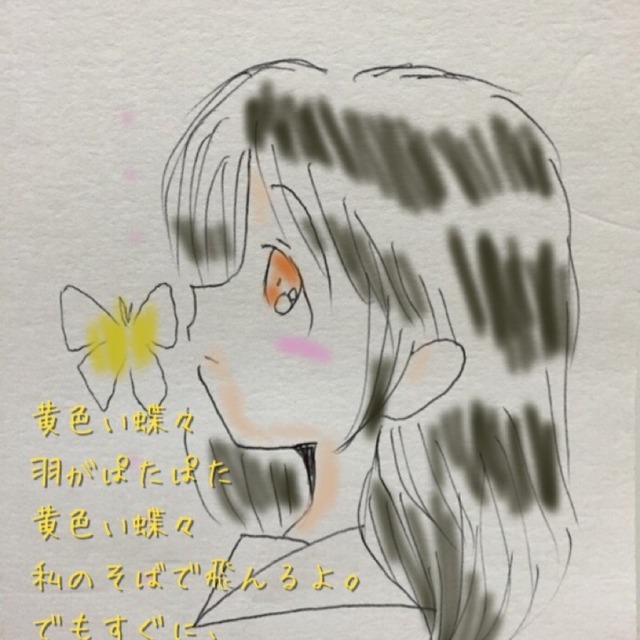 黄色い蝶々
羽がぱたぱた
黄色い蝶々
私のそばで飛んるよ。
でもすぐに、